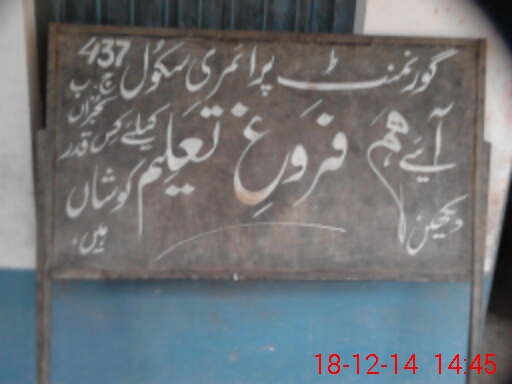 گورنمنٹ پرائمری سکول 437 ج ب
آیئے ہم فروغ تعلیم کیلئے کس قدر
دیکھیں، کوشاں
ہیں،
18-12-14 14:45